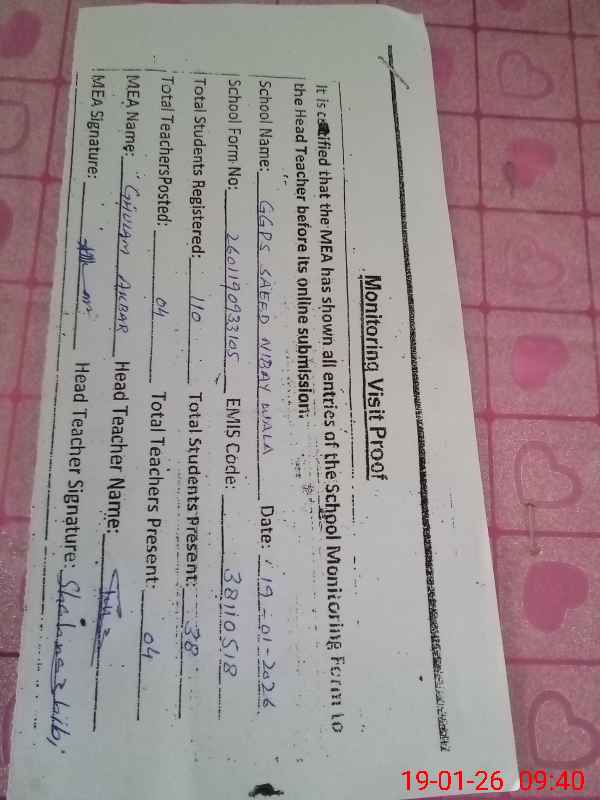 Monitoring Visit Proof
It is certified that the MEA has shown all entries of the School Monitoring Form to
the Head Teacher before its online submission.
School Name: GGPS SAEED NIBAY WALA Date: 19-01-2026
School Form No: 2601190933105 EMIS Code: 38110518
Total Students Registered: 110 Total Students Present: 38
Total TeachersPosted: 04 Total Teachers Present: 04
MEA Name: GHULAM AKBAR Head Teacher Name:
MEA Signature: Head Teacher Signature:
19-01-26 09:40